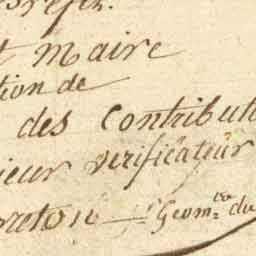 Maire
tion de
des Contribut
ieur verificateur
reton — Geom.tre du